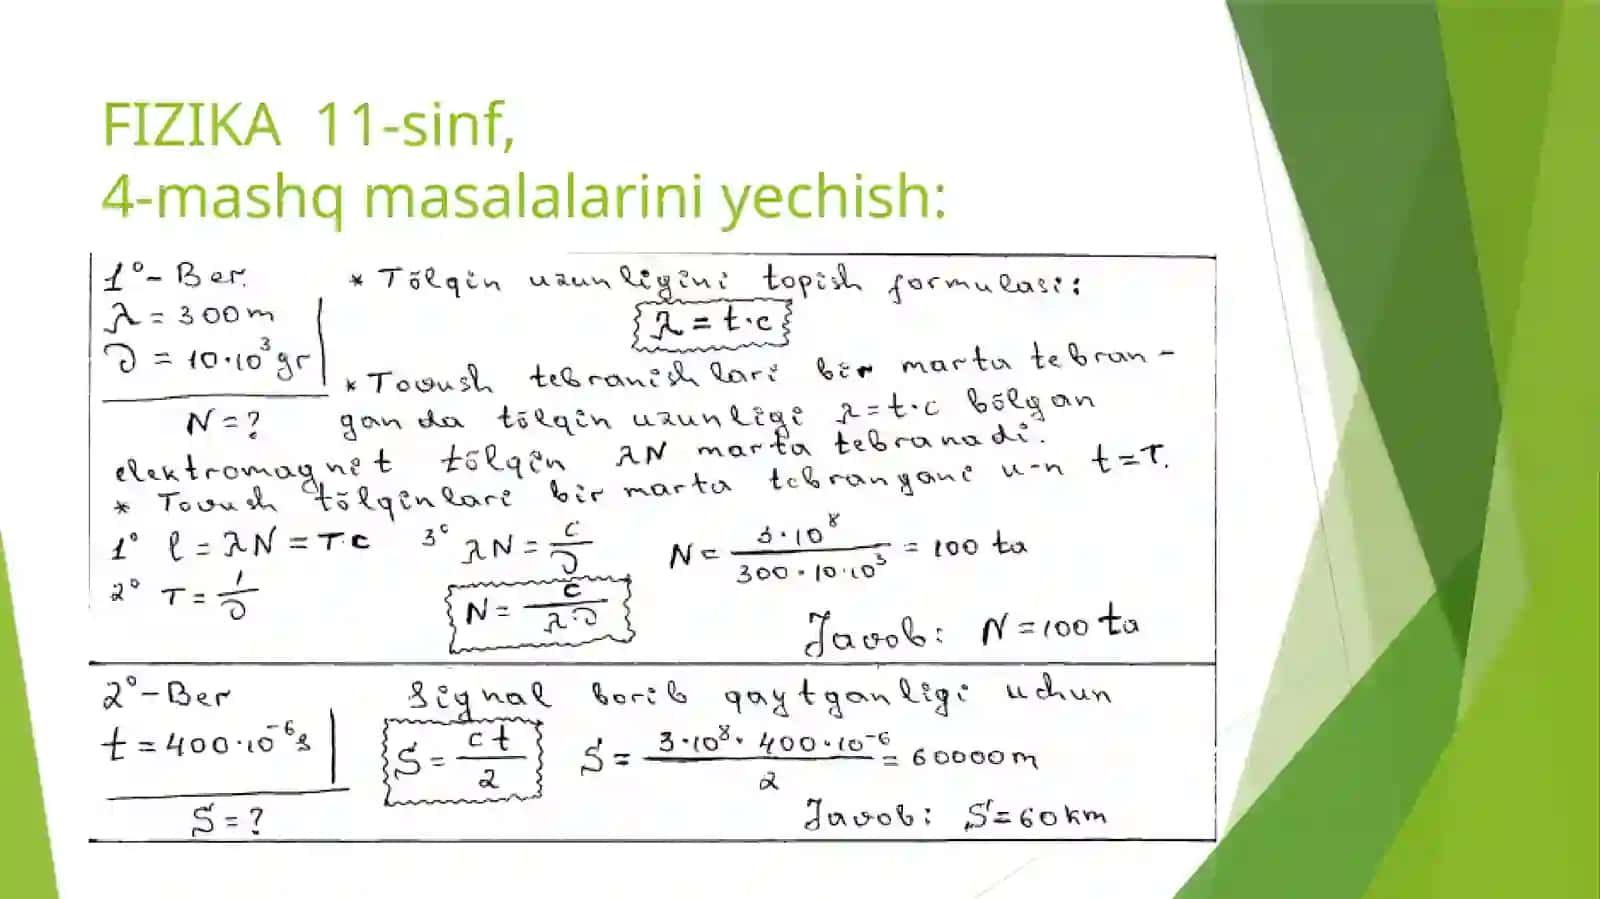 FIZIKA 11-sinf,
4-mashq masalalarini yechish:
1°-Ber.
λ = 300m
ν = 10·10³gr
N = ?
* Tōlqin uzunligini topish formulasi:
λ = t·c
* Tovush tebranishlari bir marta tebran-
ganda tōlqin uzunligi λ=t·c bōlgan
elektromagnit tōlqin λN marta tebranadi.
* Tovush tōlqinlari bir marta tebrangani u-n t=T.
1° ℓ = λN = T·c
2° T = 1/ν
3° λN = c/ν
N = c/λ·ν
N = 3·10⁸/300·10·10³ = 100 ta
Javob: N = 100 ta
2°-Ber
t = 400·10⁻⁶s
S = ?
Signal borib qaytganligi uchun
S = ct/2
S = 3·10⁸·400·10⁻⁶/2 = 60000m
Javob: S = 60km